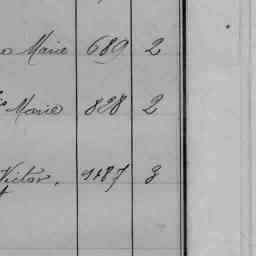 Marie 689 2
Marie 828 2
Victor. 1187 3